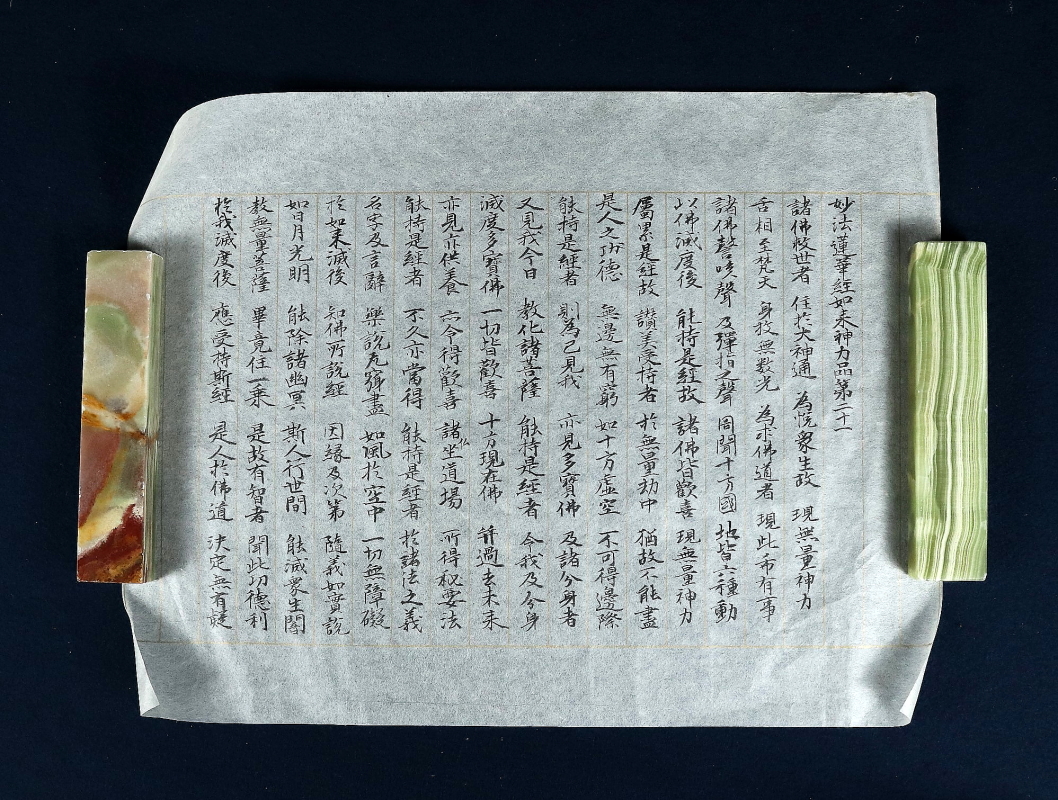 妙法蓮華經如来神力品第二十一
諸佛㧞世者 住於大神通 為悅衆生故 現無量神力
舌相至梵天 身放無數光 為求佛道者 現此希有事
諸佛謦咳聲 及彈指之聲 周聞十方國 地皆六種動
以佛滅度後 能持是經故 諸佛皆歡喜 現無量神力
屬累是經故 讃美受持者 於無量劫中 猶故不能盡
是人之功德 無邊無有窮 如十方虛空 不可得邊際
能持是經者 則為已見我 亦見多寶佛 及諸分身者
又見我今日 教化諸菩薩 能持是經者 令我及分身
滅度多寶佛 一切皆歡喜 十方現在佛 并過去未来
亦見亦供養 亦令得歡喜 諸佛坐道場 所得秘要法
能持是經者 不久亦當得 能持是經者 於諸法之義
名字及言辭 樂說无窮盡 如風於空中 一切無障礙
於如来滅後 知佛所說經 因緣及次第 隨義如實說
如日月光明 能除諸幽冥 斯人行世間 能滅衆生闇
教無量菩薩 畢竟住一乘 是故有智者 聞此功德利
於我滅度後 應受持斯經 是人於佛道 決定無有疑